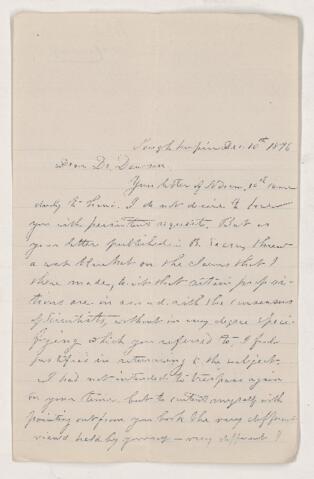 Poughkeepsie Dec. 10th 1876
Dear Dr. Dawson
Your letter of Novem. 10th came
duly to hand. I do not desire to bore
you with persistent requests. But as
your letter published in B. Sacra, threw
a wet blanket on the claims that I
there made, to wit that certain propo-
sitions are in accord with the consensus
of Scientists, without in any degree speci-
fying which you referred to, I feel
justified in returning to the subject.
I had not intended to trespass again
on your time, but to content myself with
pointing out from your book the very different
views held by yourself — very different